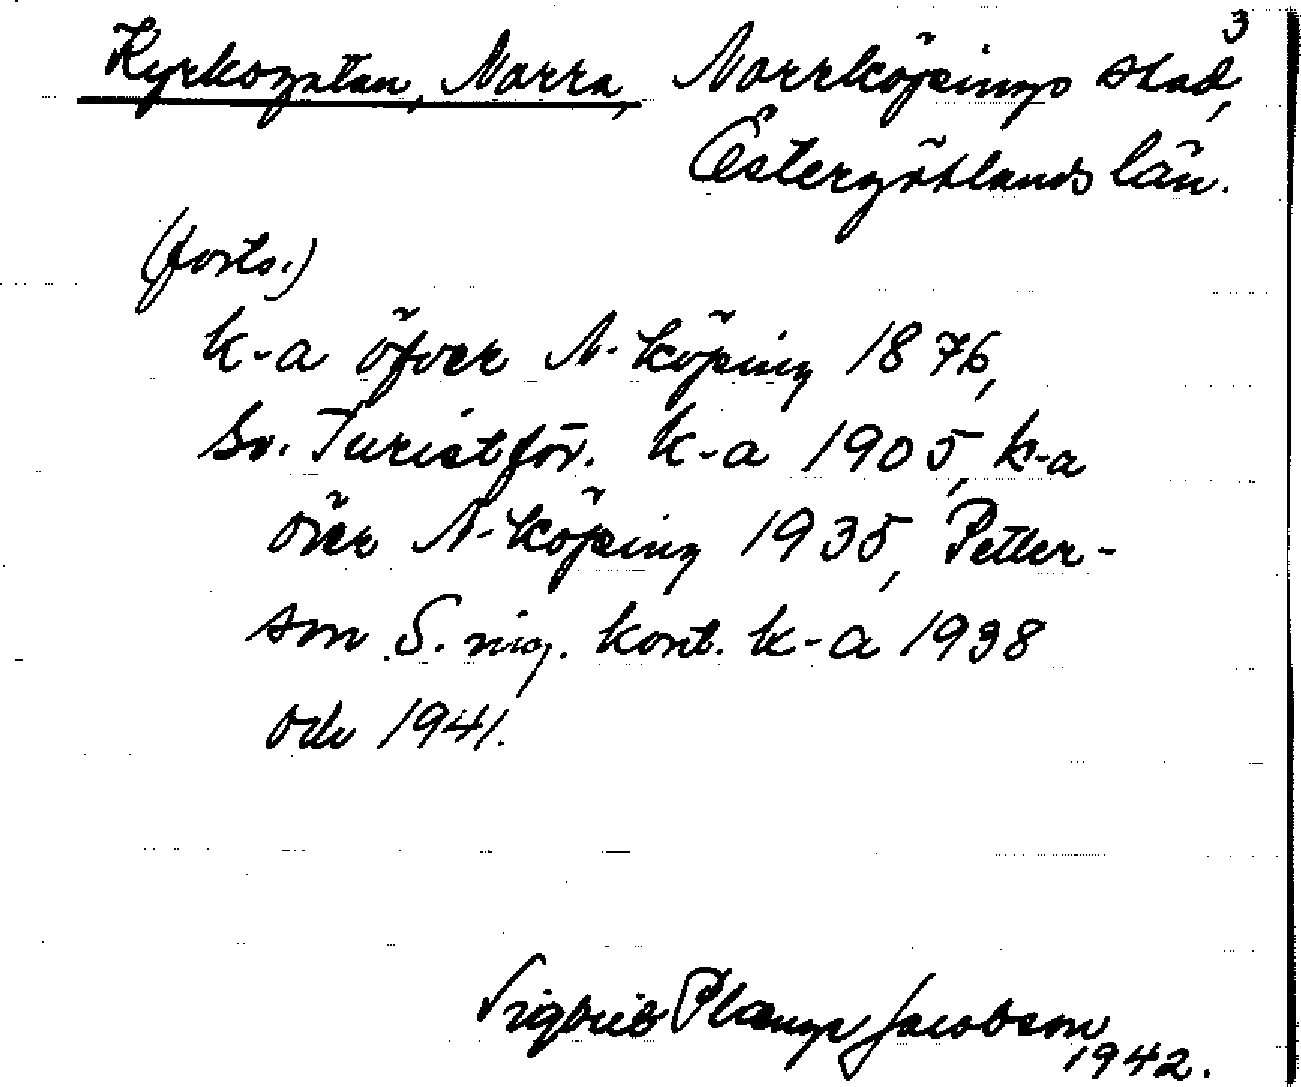 3
Kyrkogatan, Norra, Norrköpings stad,
Östergötlands län.
(forts.)
k-a öfver N-köping 1876,
Sv. Turistför. k-a 1905, k-a
över N-köping 1935, Petter-
son S. ing. kont. k-a 1938
och 1941.
Sigbrit Plænge Jacobson
1942.